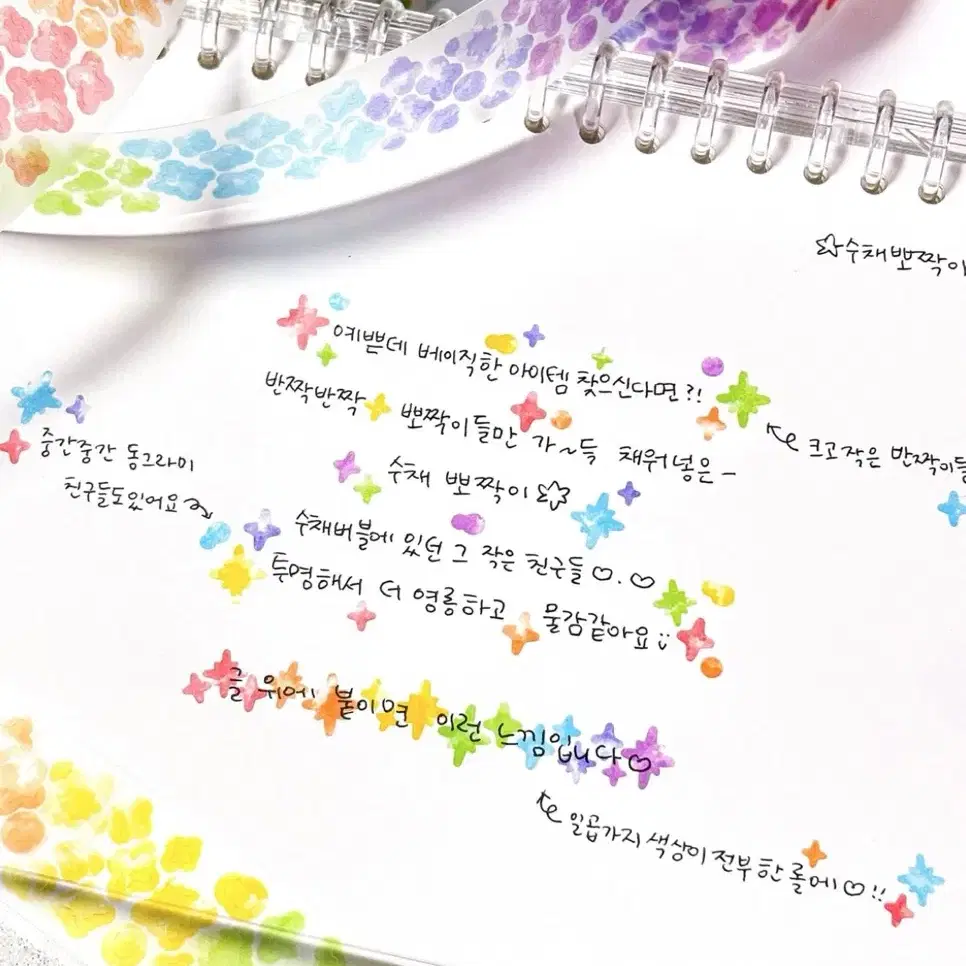 ☆수채뽀짝이
예쁜데 베이직한 아이템 찾으신다면?!
반짝반짝 뽀짝이들만 가~득 채워넣은-
수채 뽀짝이☆
수채버블에 있던 그 작은 친구들♡.♡
투명해서 더 영롱하고 물감같아요
크고작은 반짝이들
중간중간 동그라미
친구들도있어요
글 위에 붙이면 이런 느낌입니다♡
일곱가지 색상이 전부 한 롤에♡!!